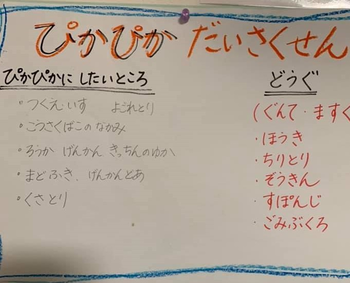 ぴかぴか だいさくせん
ぴかぴかに したいところ
・つくえ いす よごれとり
・こうさくばこの なかみ
・ろうか げんかん きっちんのゆか
・まどふき、げんかんどあ
・くさとり
どうぐ
(ぐんて・ますく
・ほうき
・ちりとり
・ぞうきん
・すぽんじ
・ごみぶくろ